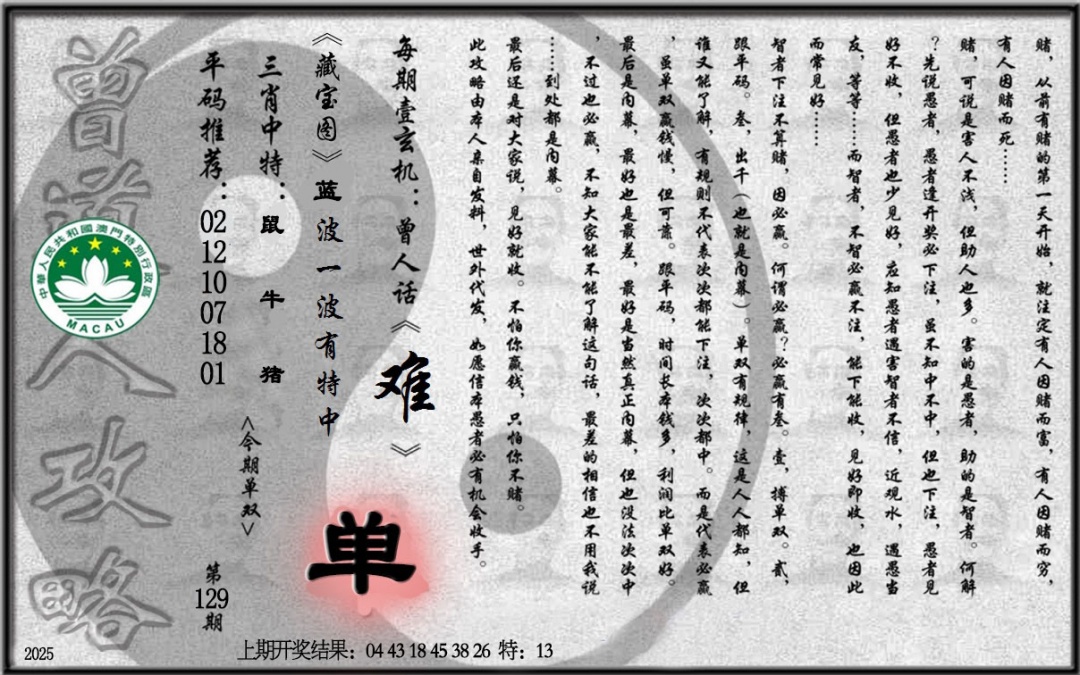 赌，从前有赌的第一天开始，就注定有人因赌而富，有人因赌而穷，
有人因赌而死……
赌，可说是害人不浅，但助人也多。害的是愚者，助的是智者。何解
？先说愚者，愚者逢开奖必下注，虽不知中不中，但也下注，愚者见
好不收，但愚者也少见好，应知愚者遇害智者不信，近观水，遇愚当
友，等等……而智者，不智必赢不注，能下能收，见好即收，也因此
而常见好……
智者下注不算赌，因必赢。何谓必赢？必赢有叁。壹，搏单双。贰，
跟平码。叁，出千（也就是内幕）。单双有规律，这是人人都知，但
谁又能了解，有规则不代表次次都能下注，次次都中。而是代表必赢
，虽单双赢钱慢，但可靠。跟平码，时间长本钱多，利润比单双好。
最后是内幕，最好也是最差，最好是当然真正内幕，但也没法次次中
，不过也必赢，不知大家能不能了解这句话，最差的相信也不用我说
……到处都是内幕。
最后还是对大家说，见好就收。不怕你赢钱，只怕你不赌。
此攻略由本人亲自发料，世外代发，如愿信本愚者必有机会收手。
每期壹玄机：曾人话《难》
《藏宝图》蓝波一波有特中
三肖中特：鼠 牛 猪
平码推荐：02 12 10 07 18 01
<今期单双>
单
第129期
曾道人攻略
中華人民共和國澳門特別行政區
MACAU
2025
上期开奖结果：04 43 18 45 38 26 特：13